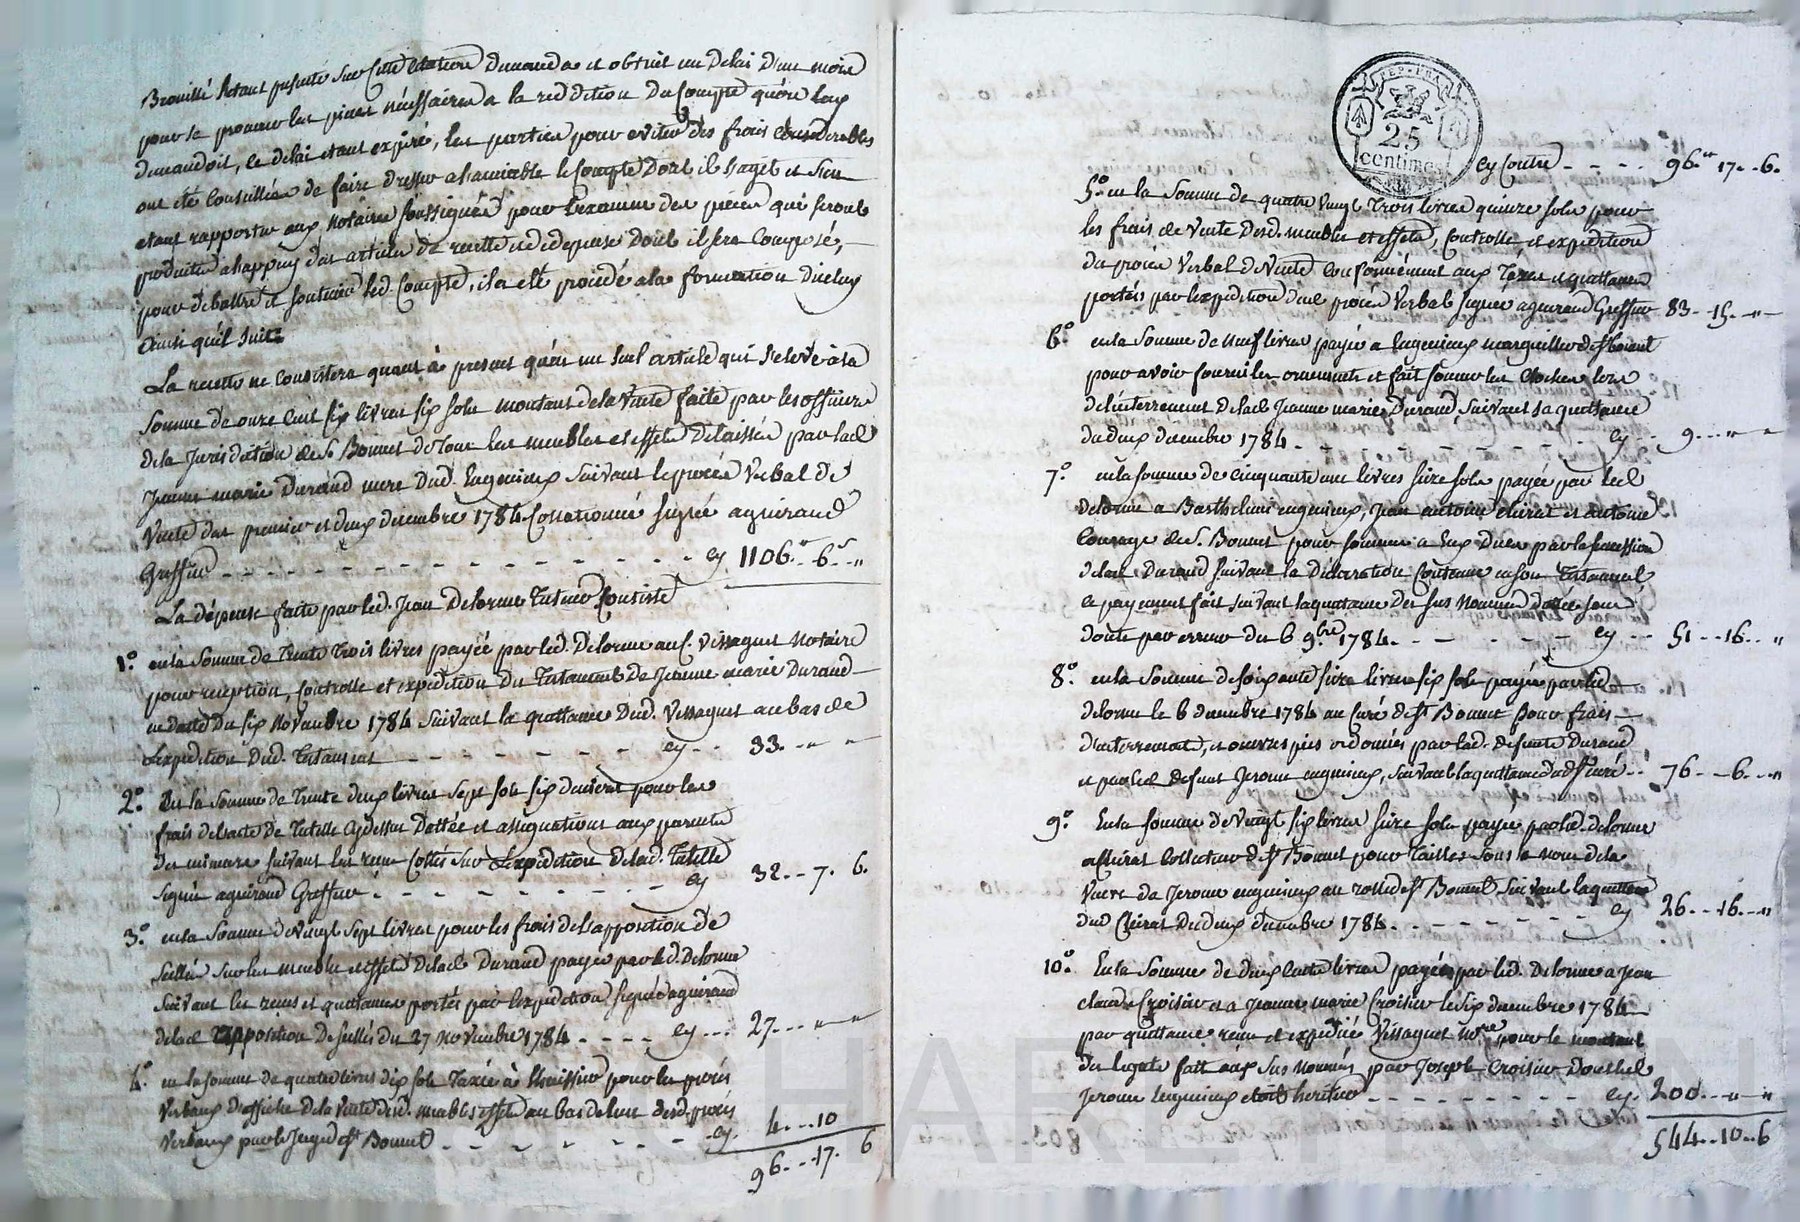 Brouillé s'étant présenté sur cette citation demanda et obtint un délai d'un mois
pour se procurer les pièces nécessaires a la reddition du Compte qu'on luy
demandoit, ce délai étant expiré, les parties pour eviter des frais considerables
ont été Conseillées de faire dresser a l'amiable le Compte dont il s'agit et s'en
etant rapportés aux notaires soussignés pour l'examen des pièces qui seront
produites a l'appuy des articles de recette et de depense dont il sera Composé,
pour débattre et soutenir led Compte, il a eté procédé a la formation d'iceluy
Ainsi qu'il suit
La recette ne Consistera quant à présent qu'en un seul article qui s'eleve à la
somme de onze cent six livres six sols montant de la Vente faite par les officiers
de la Jurisdiction de St Bonnet de tous les meubles et effets delaissés par lad
Jeanne marie Durand mere dud. Engenieux suivant le procès Verbal de
Vente des premier et deux décembre 1784 Collationné signé aguiraud
Greffier - - - - - - - - - - ey 1106.tt 6.s "
La dépense faite par led. Jean Delorme Tuteur Consiste
1° en la Somme de Trente Trois livres payée par led. Delorme au C. Vissaguet Notaire
pour reception, Controlle et expedition du Testament de Jeanne marie Durand
en datte du six Novembre 1784 suivant la quittance dud. Vissaguet au bas de
L'expedition dud. Testament - - - - - - ey - - 33. - " "
2° En la Somme de Trente deux livres sept sols six deniers pour les
frais de l'acte de Tutelle Cydessus dattée et assignations aux parents
des mineurs suivant les recus Cottés sur L'expedition de lad. Tutelle
signée aguiraud Greffier - - - - - - - ey 32. - 7. 6.
3° en la Somme de Vingt sept livres pour les frais de l'apposition de
scellés sur les meubles et effets de lad Durand payée par led. Delorme
suivant les recus et quittances portés par l'expedition signée aguiraud
de lad Apposition de scellés du 27 Novembre 1784 - - - - ey - - - 27. - - " "
4° en la Somme de quatre livres dix sols Taxée à l'huissier pour les procès
Verbaux d'affiche de la Vente desd. meubles et effets au bas de l'un desd. procès
Verbaux par le Juge de St Bonnet - - - - - - - ey. 4. - - 10
96. - - 17. 6
REP. FRA.
25
centimes
ey Contre - - - - 96tt 17. - 6.
5° en la Somme de quatre vingt Trois livres quinze sols pour
les frais de Vente desd. meubles et effets, Controlle et expedition
du procès Verbal de Vente Conformément aux Taxes et quittances
portés par l'expedition dud. procès Verbal signée aguiraud Greffier 83 - 15. - " -
6° en la Somme de Neuf livres payée a Engenieux marguillier de St Bonnet
pour avoir fourni les ornements et fait sonner les Cloches lors
de l'enterrement de lad Jeanne marie Durand suivant sa quittance
du deux decembre 1784. - - - - - - - ey - - 9. - - " "
7° en la somme de Cinquante une livres seize sols payée par led
Delorme a Barthelemi engenieux, Jean antoine Cheirat et antoine
Courage de St. Bonnet pour sommes a Eux Dues par la succession
de lad. Durand suivant la Déclaration Contenue en son Testament,
ce payement fait suivant la quittance des sus Nommés dattée sans
doute par erreur du 6 9bre 1784. - - - - - - - ey - - 51 - - 16. - "
8° en la Somme de soixante seize livres six sols payée par led
delorme le 6 decembre 1784 au Curé de St Bonnet pour frais
d'enterrement, et œuvres pies ordonnées par lad. defunte Durand
et par led defunt Jerome engenieux, suivant la quittance dud Sr Curé - - 76 - - 6. - - "
9° En la Somme de Vingt six livres seize sols payée par led. delorme
a Cheirat Collecteur de St Bonnet pour Tailles sous le nom de la
Veuve de Jerome engenieux au rolle de St Bonnet suivant la quittance
dud Cheirat du deux decembre 1784. - - - - - - ey 26. - - 16. - "
10° En la Somme de deux Cents livres payée par led. Delorme a Jean
claude Croisier et a Jeanne marie Croisier le six decembre 1784
par quittance reçue et expediée Vissaguet Nre pour le montant
du legat fait aux sus Nommés par Joseph Croisier Dont led
Jerome Engenieux etoit heritier - - - - - - - - ey. 200. - - " - "
544 - - 10 - - 6